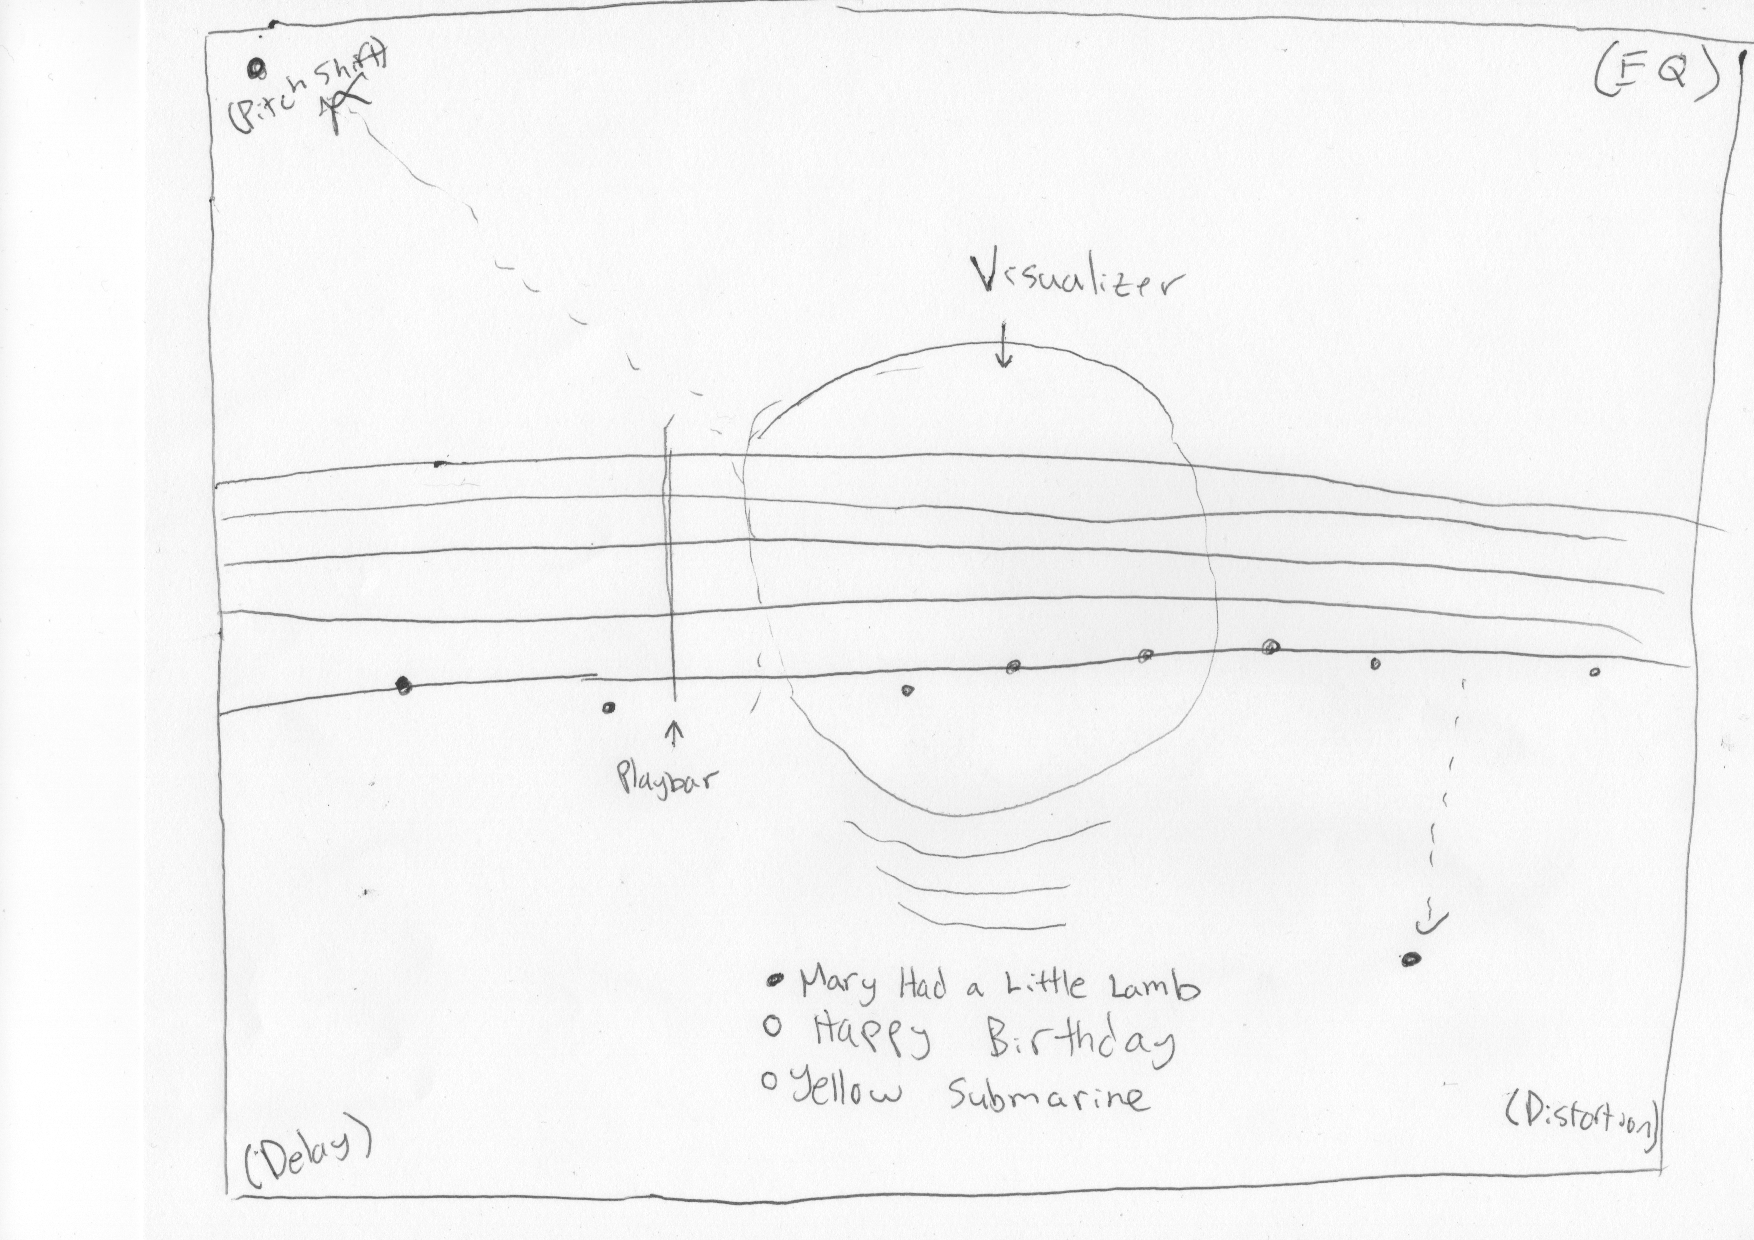 (Pitch Shift)
(EQ)
Visualizer
Playbar
Mary Had a Little Lamb
Happy Birthday
Yellow Submarine
(Delay)
(Distortion)